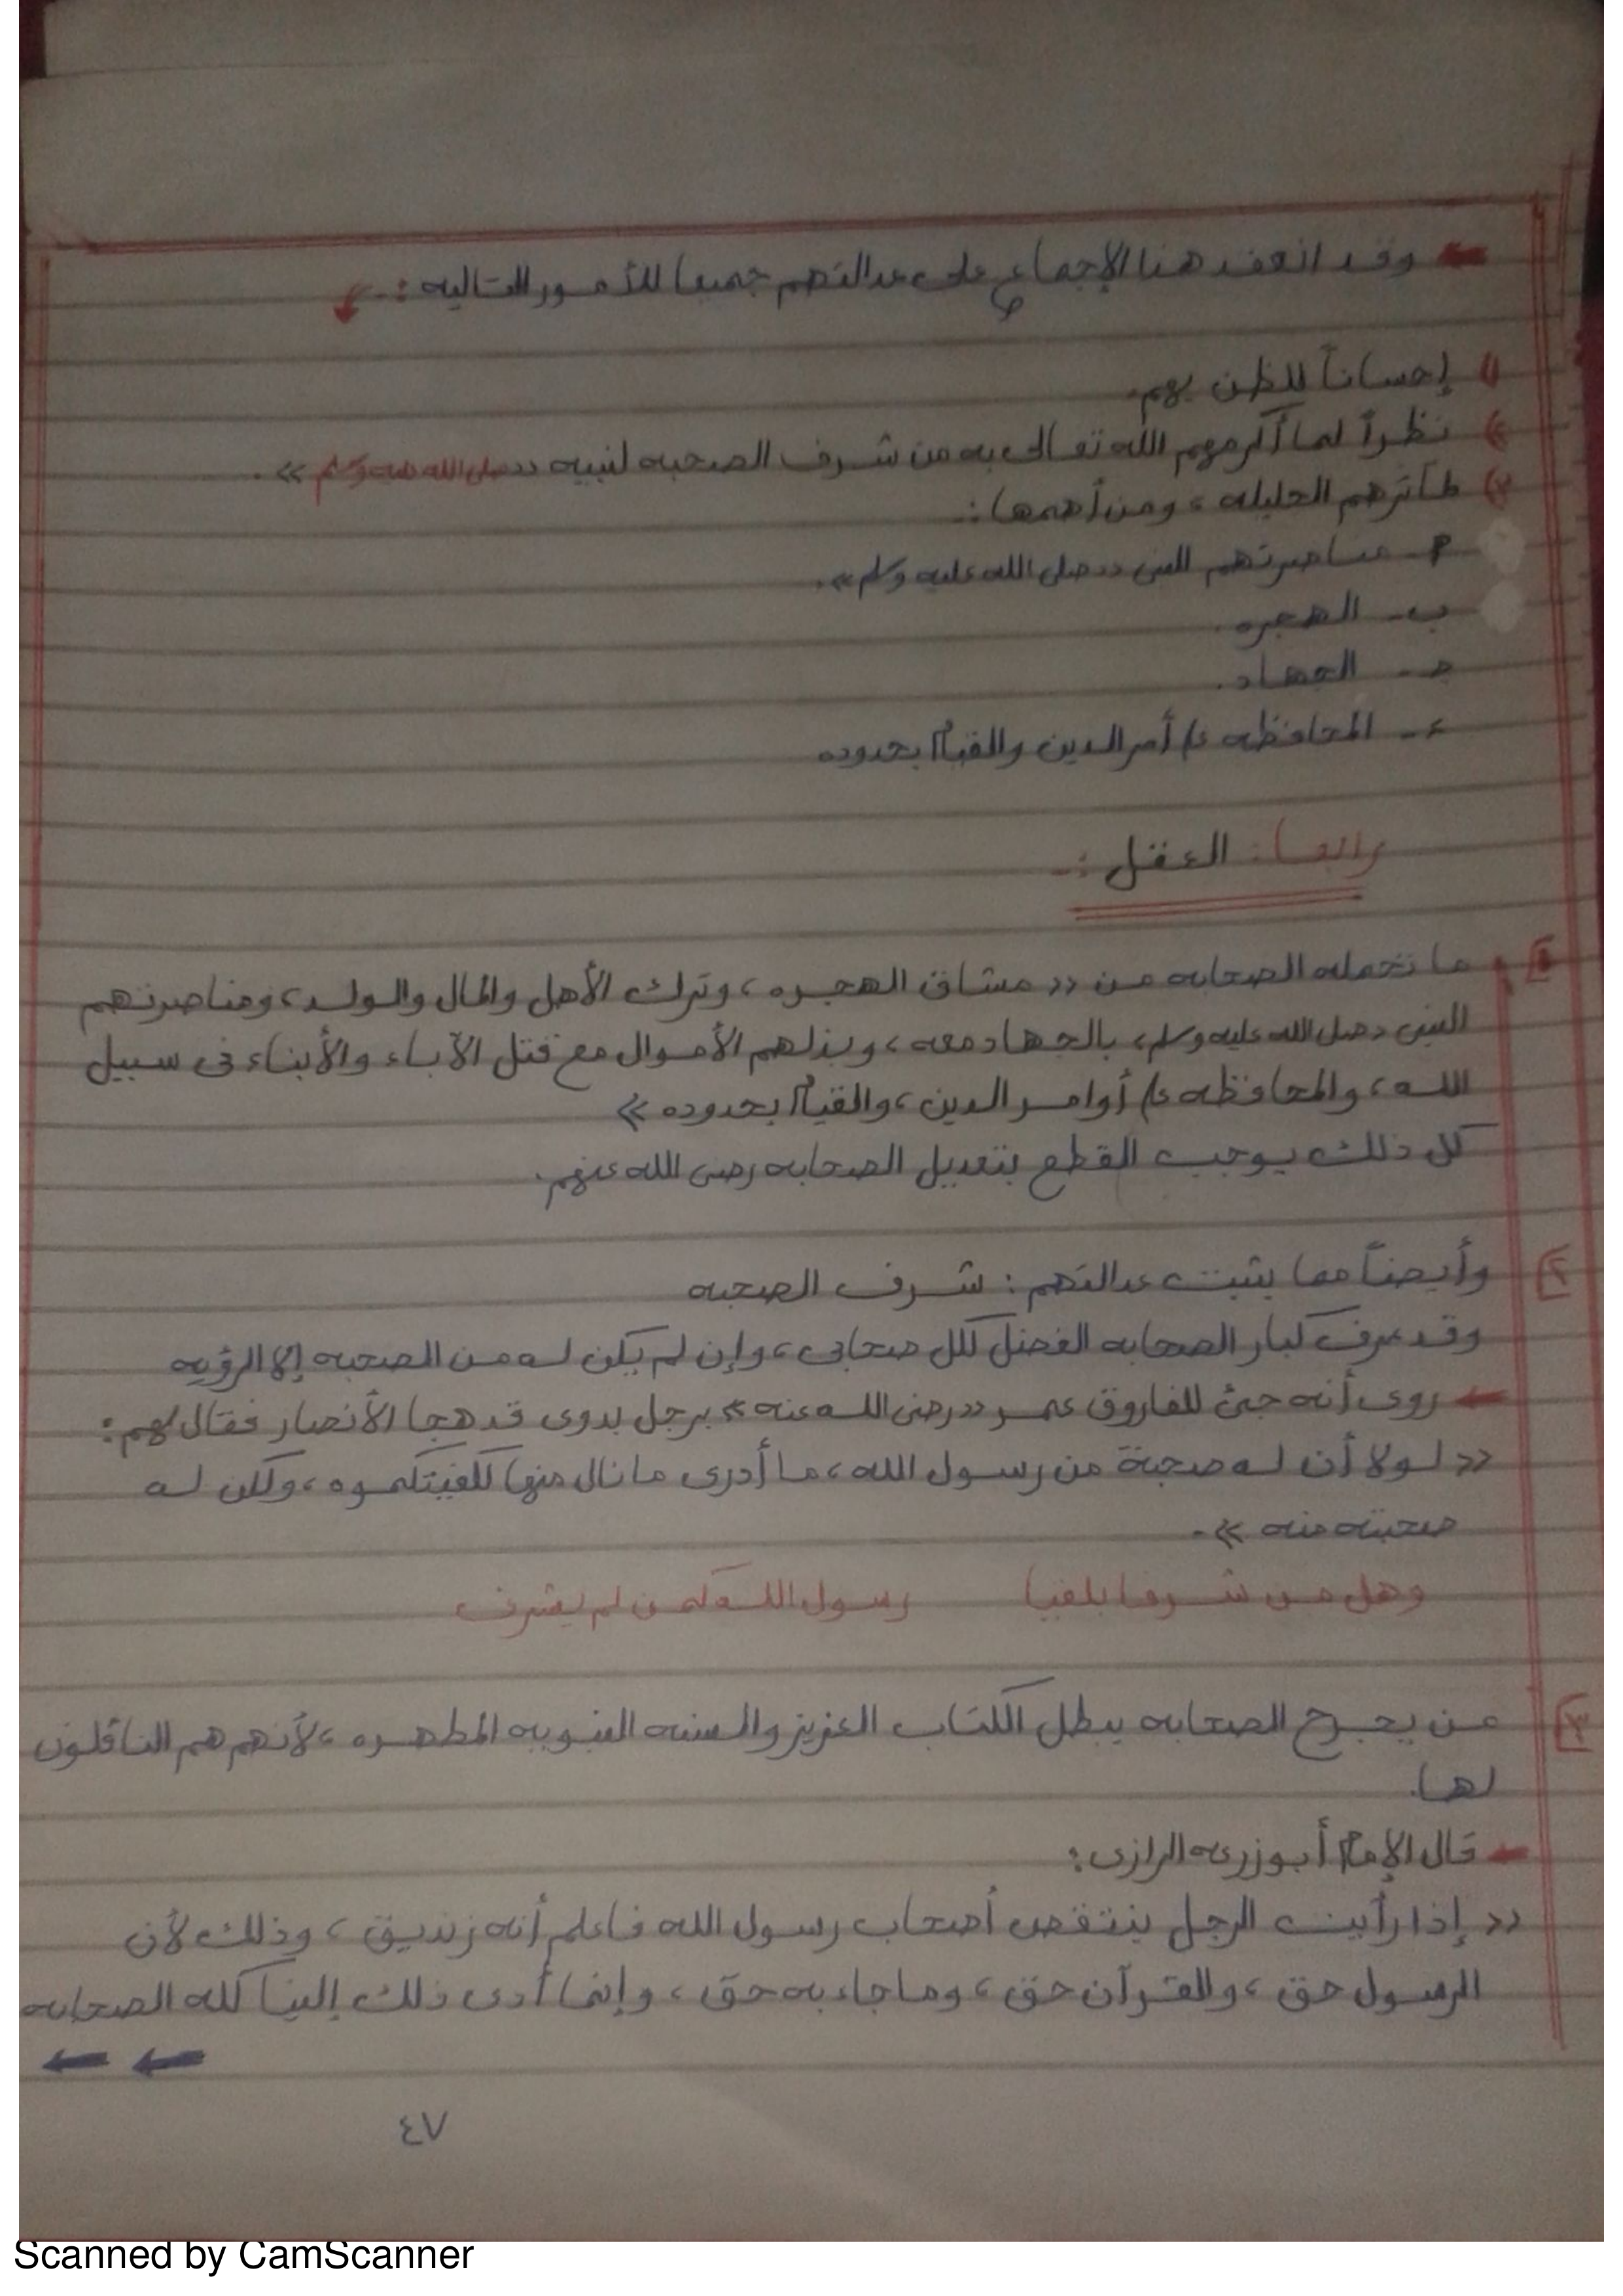 ← وقد انعقد هنا الإجماع على عدالتهم جميعا للأمور التاليه :-
١) إحساناً للظن بهم.
٢) نظراً لما أكرمهم الله تعالى به من شرف الصحبه لنبيه «صلى الله عليه وسلم».
٣) لمآثرهم الجليله ، ومن أهمها :-
أ- مناصرتهم النبى «صلى الله عليه وسلم».
ب- الهجره.
جـ- الجهاد.
د- المحافظه ع/ أمر الدين والقيام بحدوده
رابعا : العقل :-
١] ما تحمله الصحابه من «مشاق الهجره ، وترك الأهل والمال والولد ، ومناصرتهم
النبى «صلى الله عليه وسلم» بالجهاد معه ، وبذلهم الأموال مع قتل الآباء والأبناء فى سبيل
الله ، والمحافظه ع/ أوامر الدين ، والقيام بحدوده»
كل ذلك يوجب القطع بتعديل الصحابه رضى الله عنهم.
٢] وأيضاً مما يثبت عدالتهم : شرف الصحبه
وقد عرف كبار الصحابه الفضل لكل صحابى ، وإن لم يكن له من الصحبه إلا الرؤيه
← روى أنه جئ للفاروق عمر «رضى الله عنه» برجل بدوى قد هجا الأنصار فقال لهم :
«لولا أن له صحبة من رسول الله ، ما أدرى ما نال منها لكفيتكموه ، ولكن له
صحبته منه».
وهل من شرفا بلقيا رسول الله كمن لم يشرف
٣] من يجرح الصحابه يبطل الكتاب العزيز والسنه النبويه المطهره ، لأنهم هم الناقلون
لها.
← قال الإمام أبو زرعه الرازى :
«إذا رأيت الرجل ينتقص أصحاب رسول الله فاعلم أنه زنديق ، وذلك لأن
الرسول حق ، والقرآن حق ، وما جاء به حق ، وإنما أدى ذلك إلينا كله الصحابه
← ←
٤٧
Scanned by CamScanner